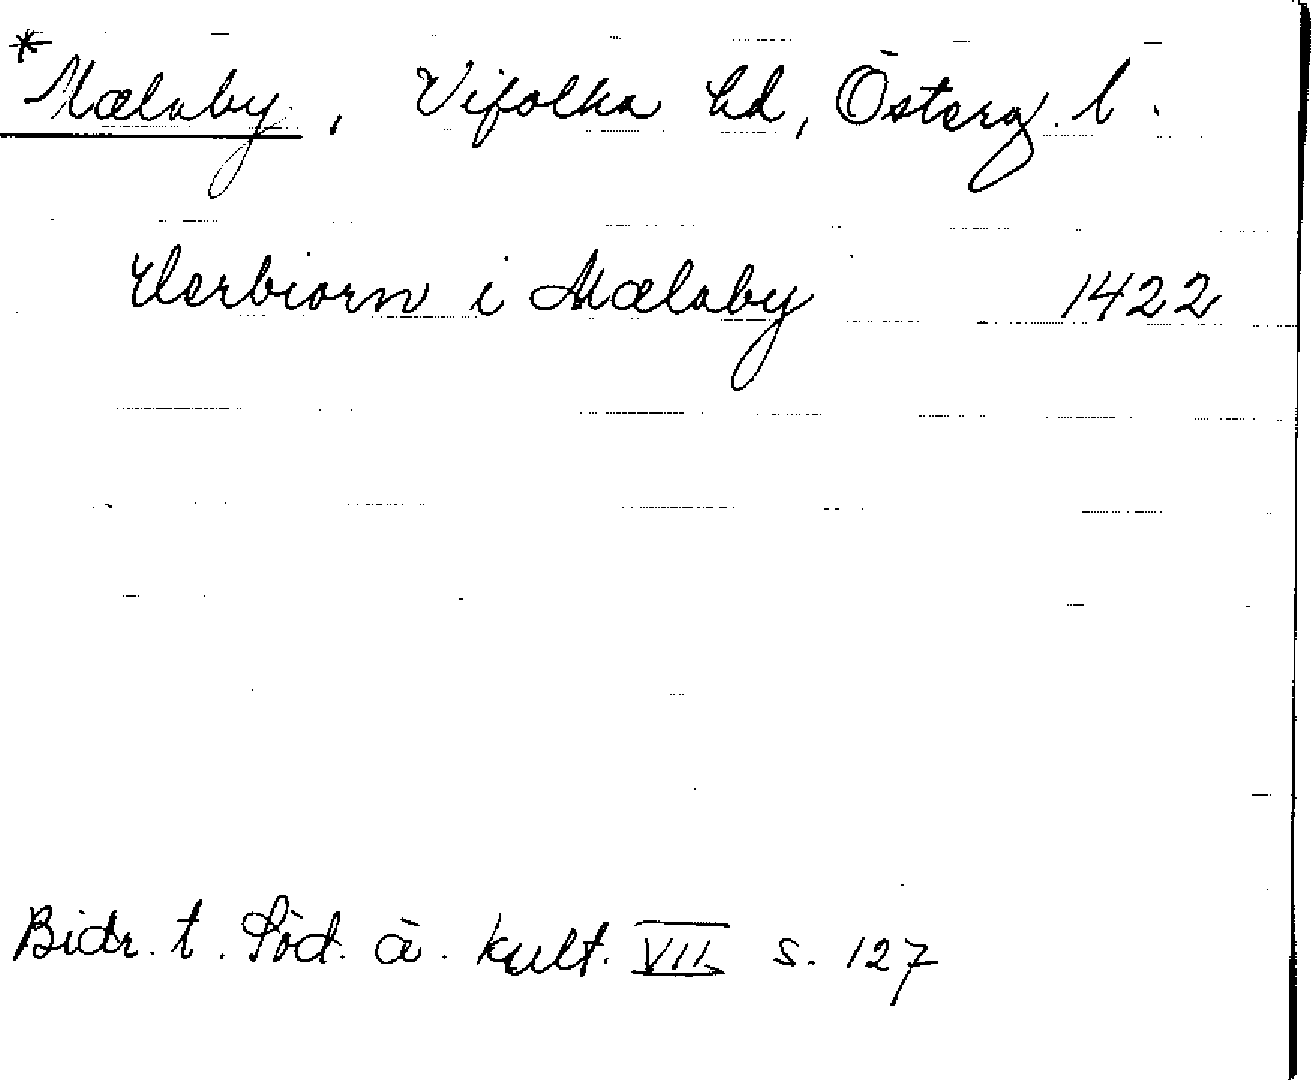 *Mælaby, Vifolka hd, Österg. l.
Verbiorn i Mælaby 1422
Bidr. t. Söd. ä. kult. VII s. 127